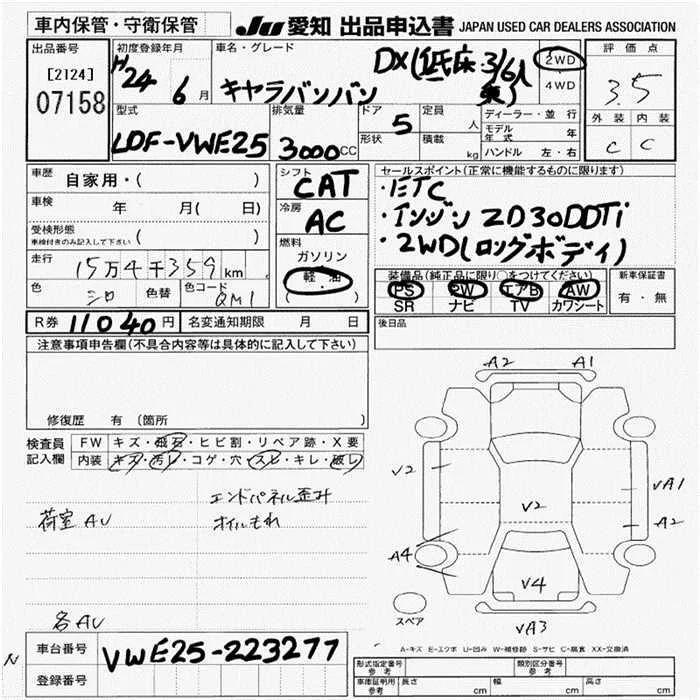 車内保管・守衛保管 JU 愛知 出品申込書 JAPAN USED CAR DEALERS ASSOCIATION
出品番号 [2124] 07158
初度登録年月 H24 6月
車名・グレード キャラバンバン DX(低床 3/6人乗)
2WD 4WD
評価点 3.5
外装 内装 C C
型式 LDF-VWE25
排気量 3000CC
ドア 5 形状
定員 人 積載 kg
ディーラー・並行
モデル年式 年
ハンドル 左・右
車歴 自家用・( )
車検 年 月( 日)
受検形態 車検付きのみ記入して下さい ( )
走行 15万4千359km
色 シロ 色替 色コード QM1
シフト CAT
冷房 AC
燃料 ガソリン 軽・油 ( )
セールスポイント(正常に機能するものに限ります)
・ETC
・インジン ZD30DDTi
・2WD(ロングボディ)
装備品(純正品に限り○をつけてください)
PS PW エアB AW
SR ナビ TV カワシート
新車保証書 有・無
R券 11040円 名変通知期限 月 日
後日品
注意事項申告欄(不具合内容等は具体的に記入して下さい)
修復歴 有 (箇所 )
検査員記入欄
FW キズ・飛石・ヒビ割・リペア跡・X要
内装 キズ・汚レ・コゲ・穴・スレ・キレ・破レ
エンドパネル歪み
荷室AU オイルもれ
各AU
A2 A1
V2 V2 VA1
A2
A4
V4
VA3
スペア
A-キズ E-エクボ U-凹み W-補修跡 S-サビ C-腐食 XX-交換済
N
車台番号 VWE25-223277
登録番号
形式指定番号 参考 類別区分番号 参考
車庫証明用 参考 長さ cm 幅 cm 高さ cm